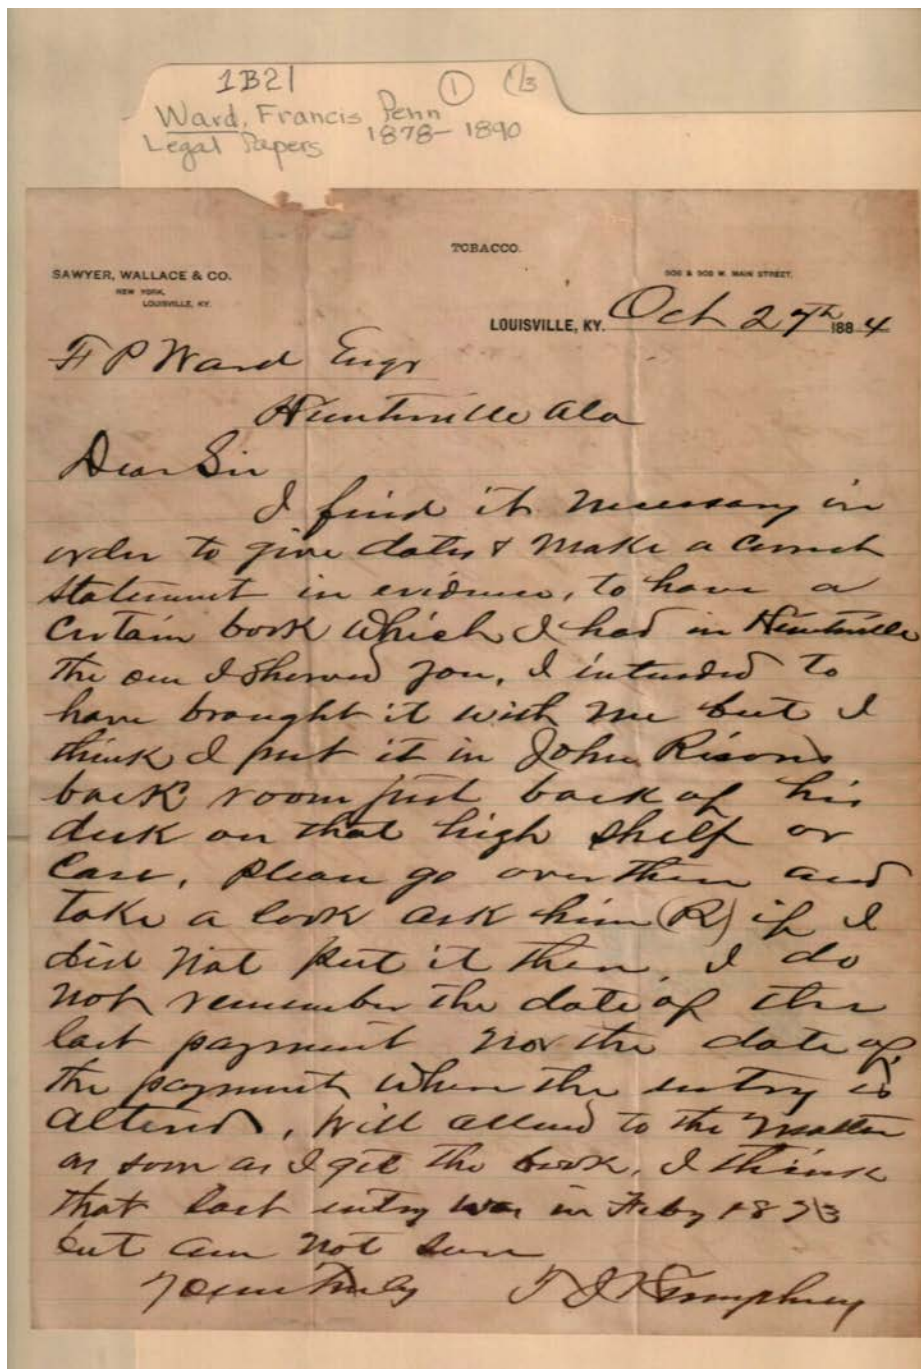 1B21 ① 1/3
Ward, Francis Penn
Legal Papers 1878-1890
TOBACCO.
SAWYER, WALLACE & CO.
NEW YORK,
LOUISVILLE, KY.
W. MAIN STREET.
LOUISVILLE, KY. Oct 27th 1884
F P Ward Esqr
Huntsville Ala
Dear Sir
I find it necessary in
order to give dates & make a correct
statement in evidence, to have a
certain book which I had in Huntsville
the one I showed you, I intended to
have brought it with me but I
think I put it in John Risons
back room just back of his
desk on that high shelf or
Case, please go over there and
take a look ask him (R) if I
did not put it there, I do
not remember the date of the
last payment nor the date of
the payment where the entry is
altered, Will attend to the matter
as soon as I get the book, I think
that last entry was in Feby 1873
but am not sure
Yours Truly T J Humphrey